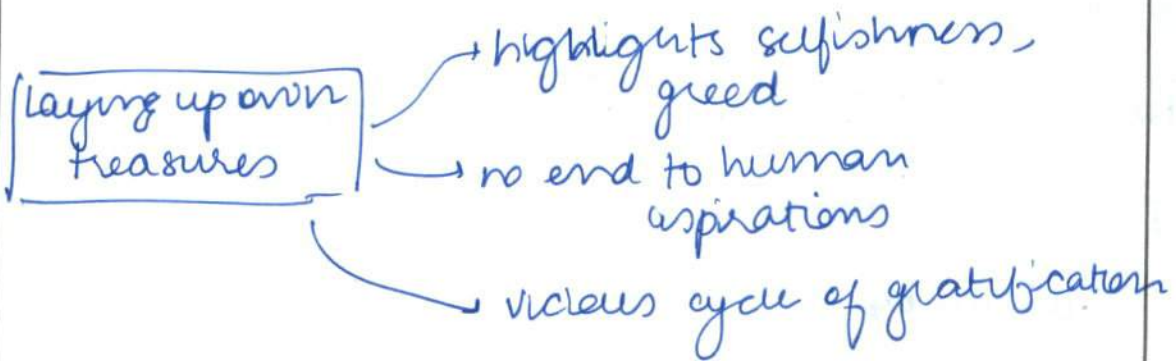 laying up own
treasures
highlights selfishness,
greed
no end to human
aspirations
vicious cycle of gratification